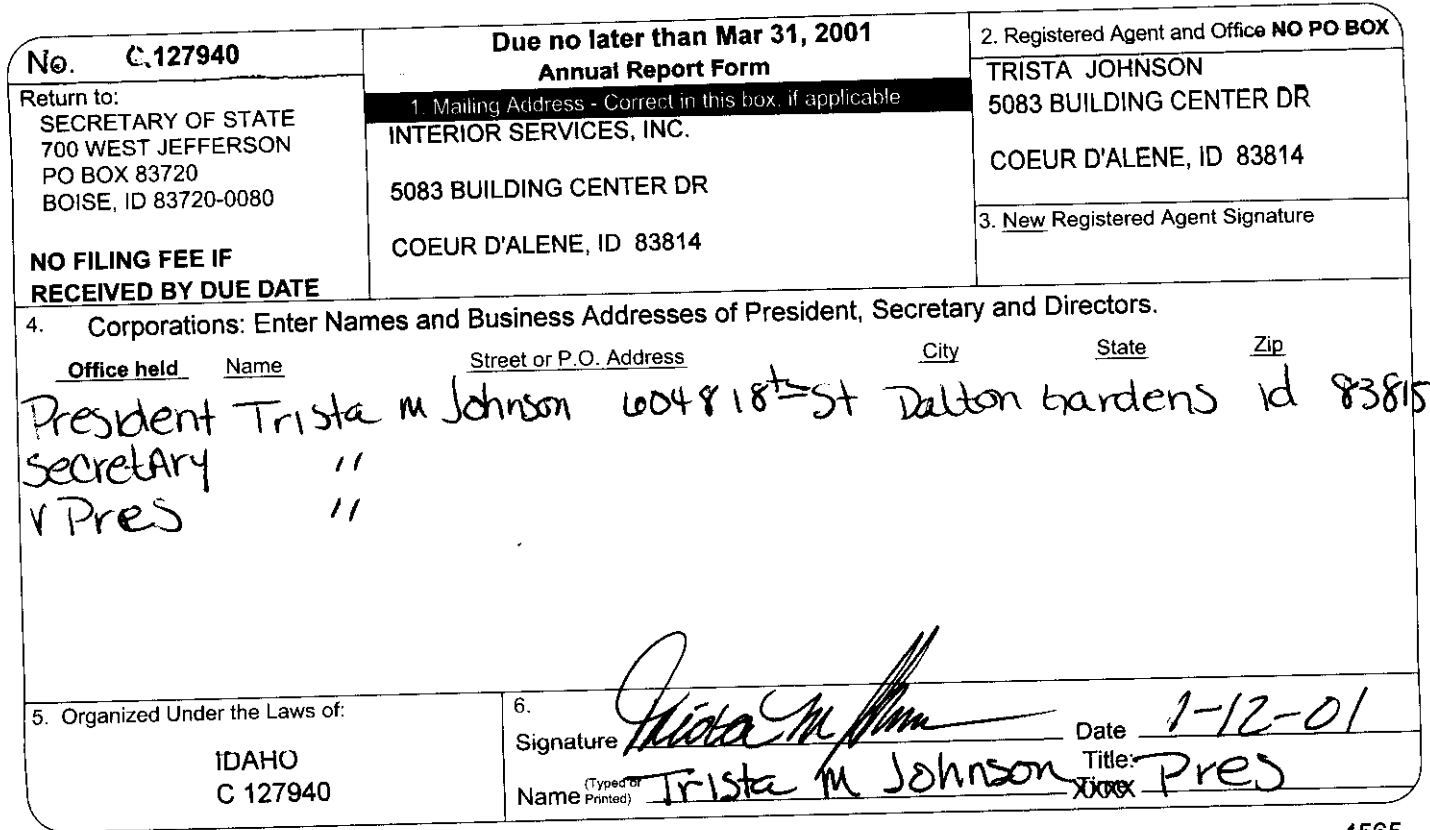 No. C 127940
Return to:
SECRETARY OF STATE
700 WEST JEFFERSON
PO BOX 83720
BOISE, ID 83720-0080
NO FILING FEE IF
RECEIVED BY DUE DATE
Due no later than Mar 31, 2001
Annual Report Form
1. Mailing Address - Correct in this box, if applicable
INTERIOR SERVICES, INC.
5083 BUILDING CENTER DR
COEUR D'ALENE, ID 83814
2. Registered Agent and Office NO PO BOX
TRISTA JOHNSON
5083 BUILDING CENTER DR
COEUR D'ALENE, ID 83814
3. New Registered Agent Signature
4. Corporations: Enter Names and Business Addresses of President, Secretary and Directors.
Office held Name Street or P.O. Address City State Zip
President Trista M Johnson 6048 18th St Dalton Gardens id 83815
SecretAry "
V Pres "
5. Organized Under the Laws of:
IDAHO
C 127940
6.
Signature Trista M Date 1-12-01
Name (Typed or Printed) Trista M Johnson Title: Pres